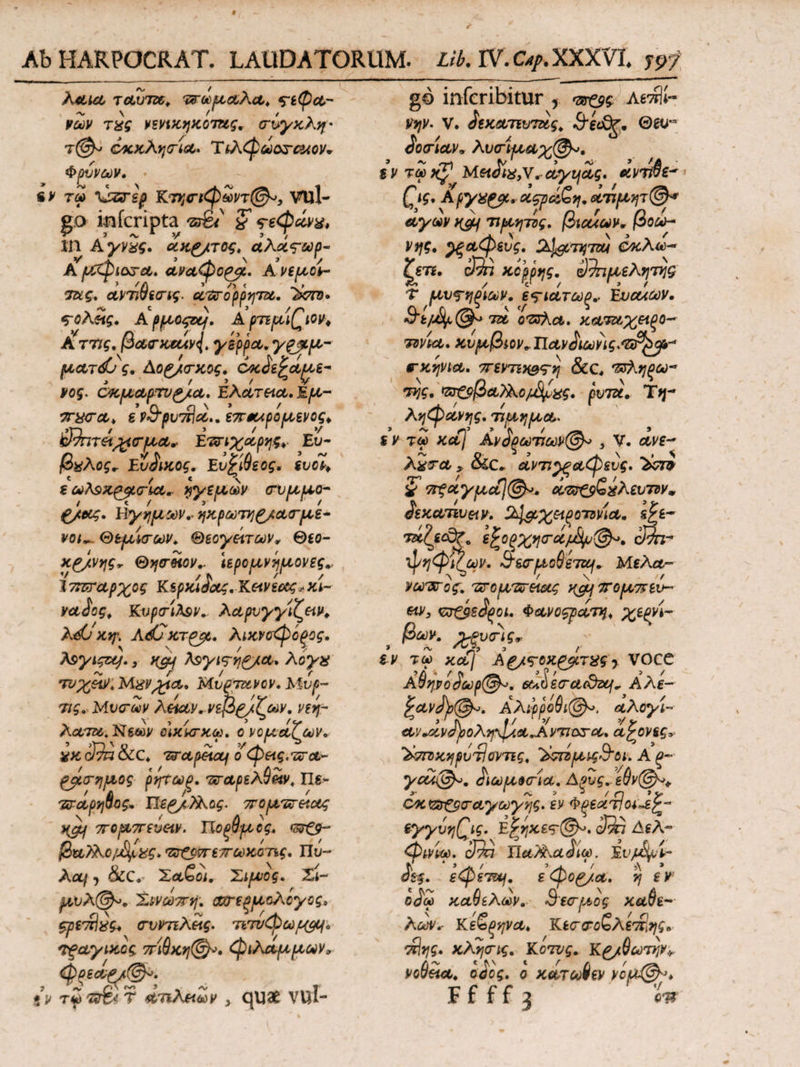 Ab HARPOCRAT. LAUDATORUM. Lib. IV. Cap. XXXVI. 597
λαια ταῦτα. πώμαλα. στεφα-
νῶν τοὺς νενικηκότας. σύγκλη-
τος ἐκκλησία. Τιλφώσσαιον.
Φρύνων.
ἐν τῷ ὑπὲρ Κτησιφῶντος, vul-
go inscripta περὶ τοῦ στεφάνου,
in Ἀγνούς. ἄκριτος. ἀλάστωρ-
Ἀμφισσα. ἀναφορά. Ἀνεμοί-
τας. ἀντίθεσις. ἀπορρητα. ἀπο-
στολεῖς. Ἁρμοςαι. Ἀρτεμίσιον.
Ἄττις. βασκαίνει. γέρρα. γραμ-
ματεύς. Δορίσκος. ἐκδεξάμε-
νος. ἐκμαρτυρία. Ἐλάτεια. Ἐμ-
πουσα. ἐνθρυπτα. ἐπαιρόμενος.
ἐπιτείχισμα. Ἐπιχάρης. Εὔ-
βουλος. Εὔδικος. Εὐξίθεος. εὐοῖ.
ἑωλοκρασία. ἡγεμὼν συμμο-
ρίας. Ἡγήμων. ἠκρωτηριασμέ-
νοι. Θεμίσων. Θεογείτων. Θεο-
κρίνης. Θησεῖον. ἱερομνήμονες.
ἵππαρχος Κερκίδας. Κεινέας. κί-
ναδος. Κυρσίλον. λαρυγγίζειν.
λεύκη. Λεύκτρα. λικνοφόρος.
λογισαι., καὶ λογιστήρια. λόγου
τυχεῖν. Μουνχια. Μύρτανον. Μύρ-
τις. Μυσῶν λείαν. νεβρίζων. νεή-
λατα. Νεῶν οἰκίσκῳ. ὁ νομάζων.
οὐκ ἐπὶ &c. παρείαι ὄφεις. πα-
ράσημος ῥήτωρ. παρελθεῖν. Πε-
πάρηθος. Περίλλος. πομπείας
καὶ πομπεύειν. Πορθμός. προ-
βαλλομένους. προπεπωκότις. Πύ-
λαι, &c. Σάβοι. Σιμός. Σί-
μυλος. Σινώπη. σπερμολόγος.
στρεπτούς. συντελεῖς. τετύφωμαι.
τραγικὸς πίθηκος. φιλάμμων.
φρεάριος.
ἐν τῷ περὶ τῶν ἀτελειῶν, quæ vul-
gò inscribitur, πρὸς Λεπτί-
νην. V. δεκατευτάς. θέσθαι. Θευ-
δοσίαν. Λυσίμαχος.
ἐν τῷ κατὰ Μειδίου, V. ἀγυιᾶς. ἀντίθε-
σις. Ἀργυρᾶ. ἀστράβη. ἀτίμητος
ἀγὼν καὶ τιμητός. βιαίων. βοώ-
νης. γραφεύς. διαιτηταὶ ἐκλώ-
ζετε. ἐπὶ κόρρης. ἐπιμελητὴς
τῶν μυστηρίων. ἑστιάτωρ. Εὐαίων.
θέμενος τὰ ὅπλα. καταχειρο-
τονία. κυμβίον. Πανδίωνις. παρα-
σκήνια. πεντικοστὴ &c. πληρω-
τής. προβαλλομένους. ῥυτά. Τη-
ληφάνης. τιμημα.
ἐν τῷ κατὰ Ἀνδρωτίωνος, V. ἀνε-
λοῦσα, &c. ἀντιγραφεύς. ἀπὸ
τοῦ πράγματος. ἀπροβούλευτον.
δεκατεύειν. διαχειροτονία. ἐξε-
τάζεσθαι. ἐξορχησάμενος. ἐπι-
ψηφίζων. θεσμοθέται. Μελα-
νωπός. πομπείας καὶ πομπεύ-
ειν, πρόεδροι. Φανοστράτη. χερνί-
βων. χρυσίς.
ἐν τῷ κατὰ Ἀριστοκράτους, voce
Ἀθηνόδωρος. αἰδέσασθαι. Ἀλέ-
ξανδρος. Ἁλιρρόθιος. ἀλογί-
αν. ἀνδροληψία. Ἄντισσα. ἄξονες.
ἀποκηρύττοντες. ἀπόμισθοι. Ἀρ-
γαῖος. διωμοσία. Δρῦς. ἔθνος.
ἐκ προσαγωγῆς. ἐν Φρεαττοῖ. ἐξ-
εγγύησις. Ἐξήκεστος. ἐπὶ Δελ-
φινίῳ. ἐπὶ Παλλαδίῳ. Εὐμενί-
δες. ἐφέται. ἐφορία. ἢ ἐν
ὁδῷ καθελών. θεσμὸς καθε-
λών. Κέβρηνα. Κερσοβλέπτης.
πτης. κλῆσις. Κότυς. Κριθωτήν.
νοθεῖα. ὁδός. ὁ κάτωθεν νόμος.
Ffff 3 ὅτι